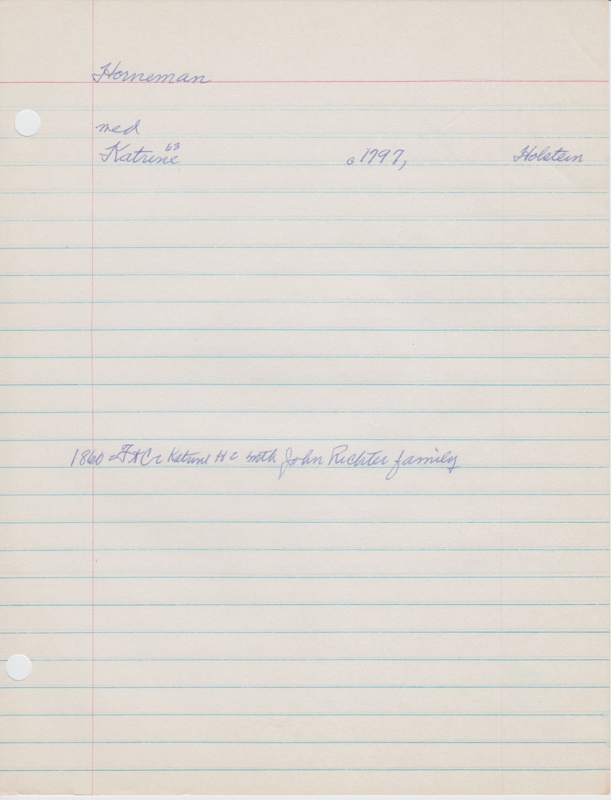 Horneman
med
Katrine 63 c 1797, Holstein
1860 Katrine H John Richter family